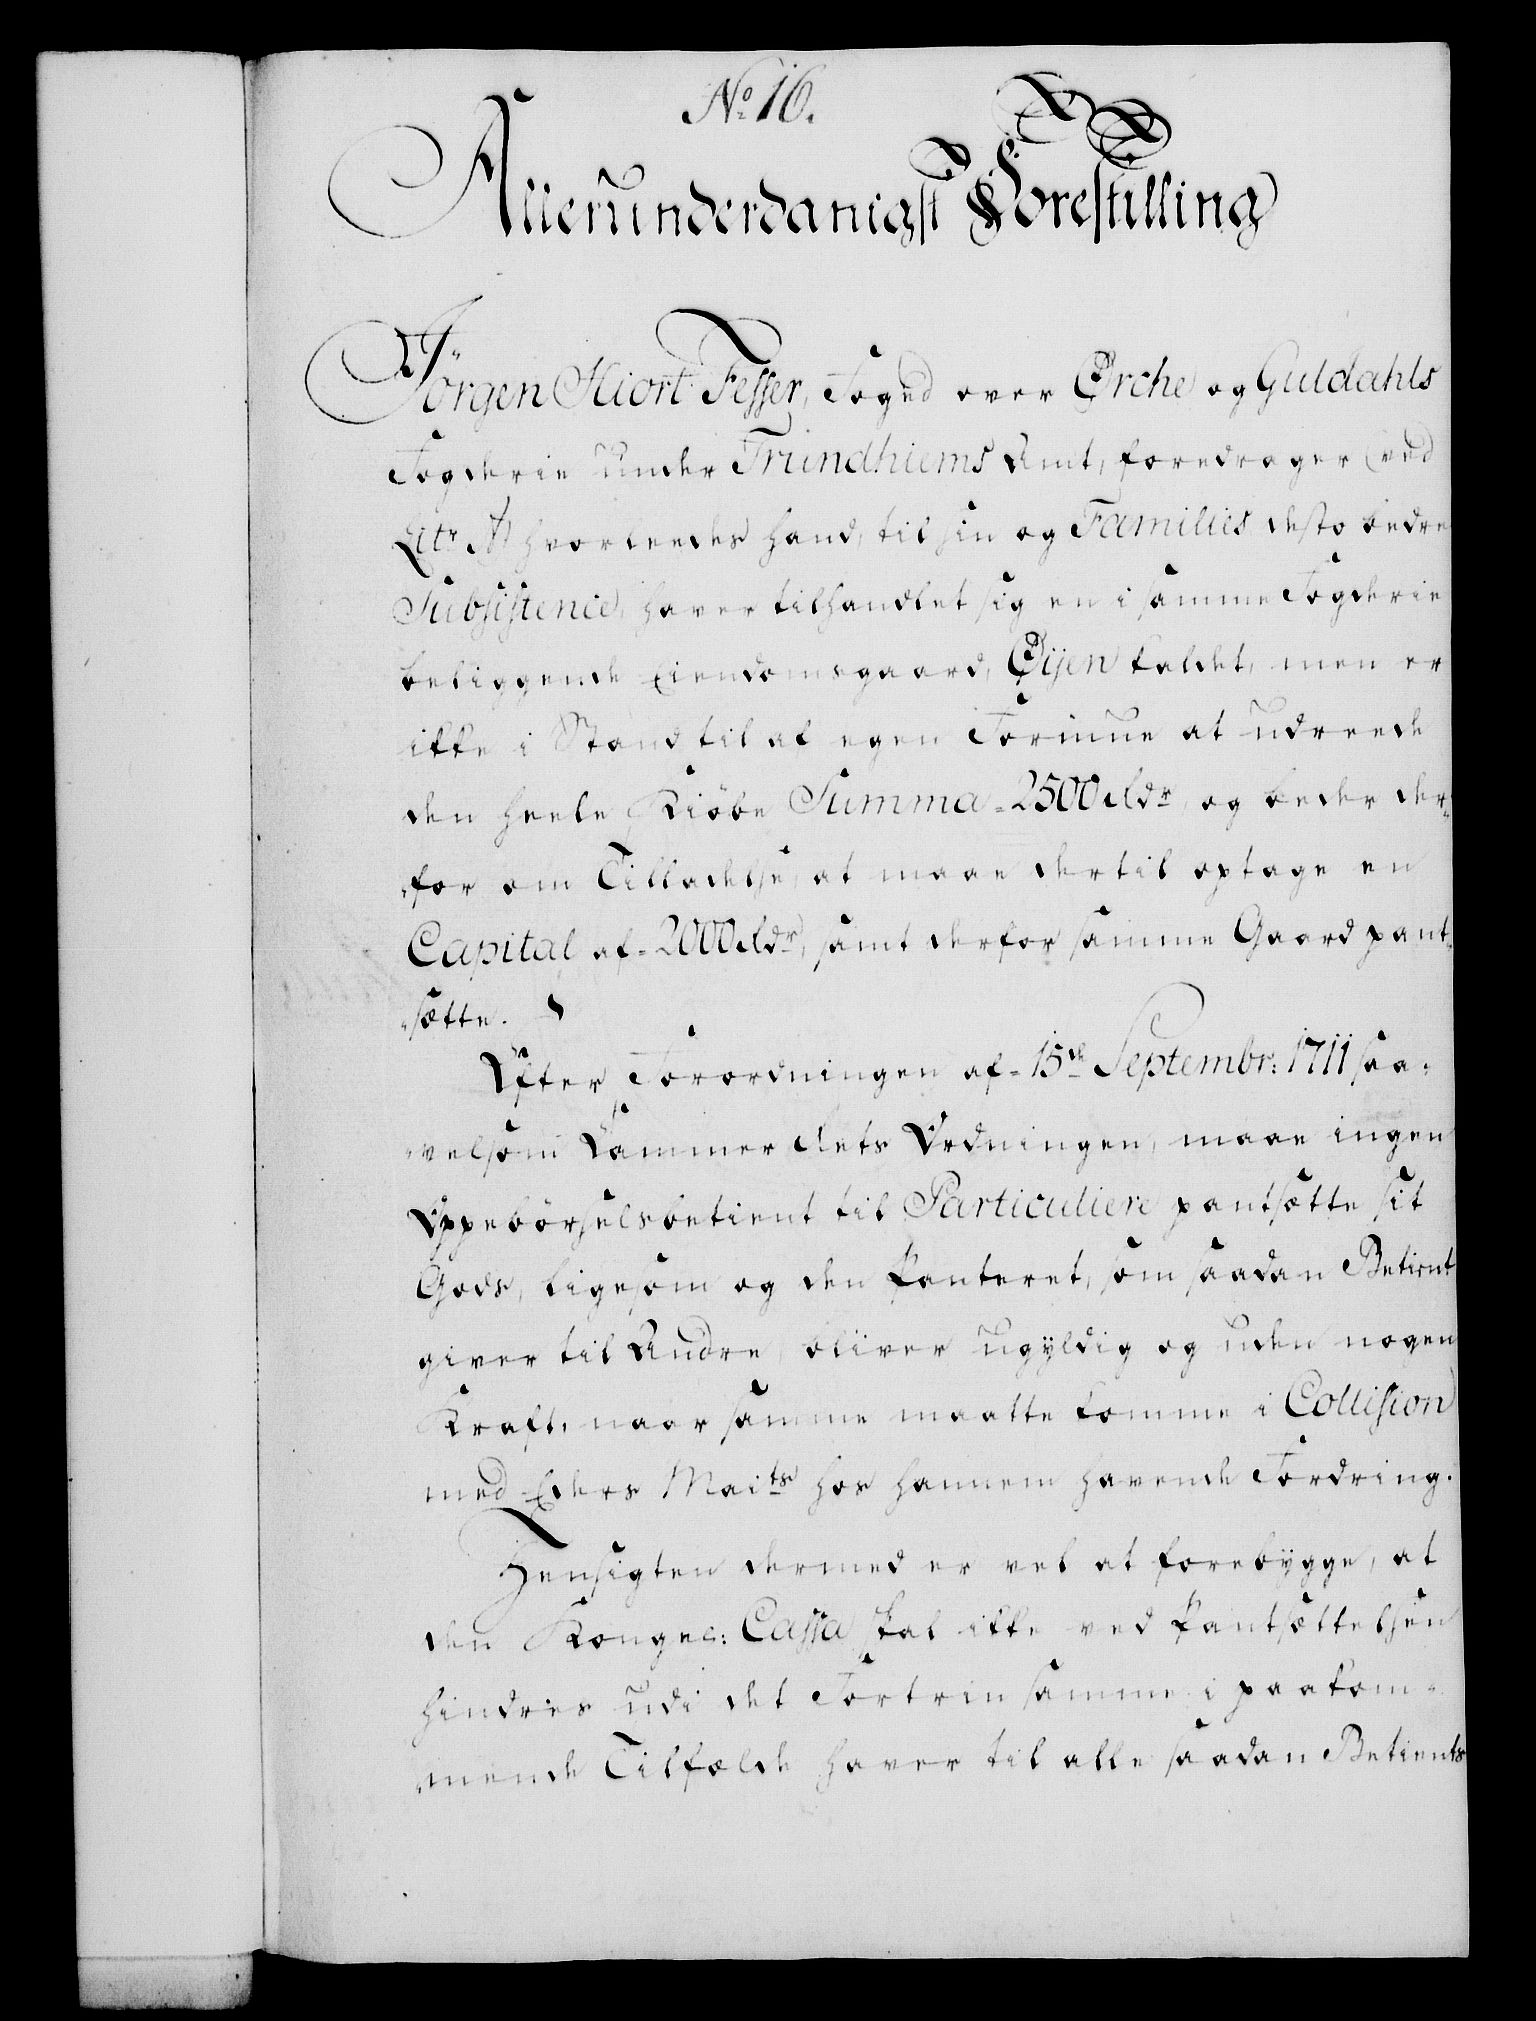 No 16.
Allerunderdanigst Forestilling
Jörgen Hiort Fesser, Foged over Ørche og Guldahls
Fogderie under Trundhiems Amt, foredrager (ved
Litr A) hvorleedes hand, til sin og Families desto bedre
Subsistence, haver tilhandlet sig en i samme Fogderie
beliggende Eiendomsgaard, Øijen kaldet, men er
ikke i Stand til af egen Formue at udreede
den heele Kiöbe Summa = 2500 Rdr, og beder der-
-for om Tilladelse, at maae dertil optage en
Capital af = 2000 Rdr, samt derfor samme Gaard pant-
-sætte.
Efter Forordningen af = 15de Septembr: 1711 saa-
-velsom Cammer Rets Ordningen, maae ingen
Oppebörselsbetient til Particuliere pantsætte sit
Gods, ligesom og den Panteret, som saadan Betient
giver til Andre, bliver ugyldig og uden nogen
Kraft, naar samme maatte komme i Collision
med Eders Maits hos hannem havende Fordring.
Hensigten dermed er vel at forebygge, at
den Kongel: Cassa skal ikke ved Pantsættelsen
hindres udi det Fortrin samme i paakom-
-mende Tilfælde haver til alle saadan Betients